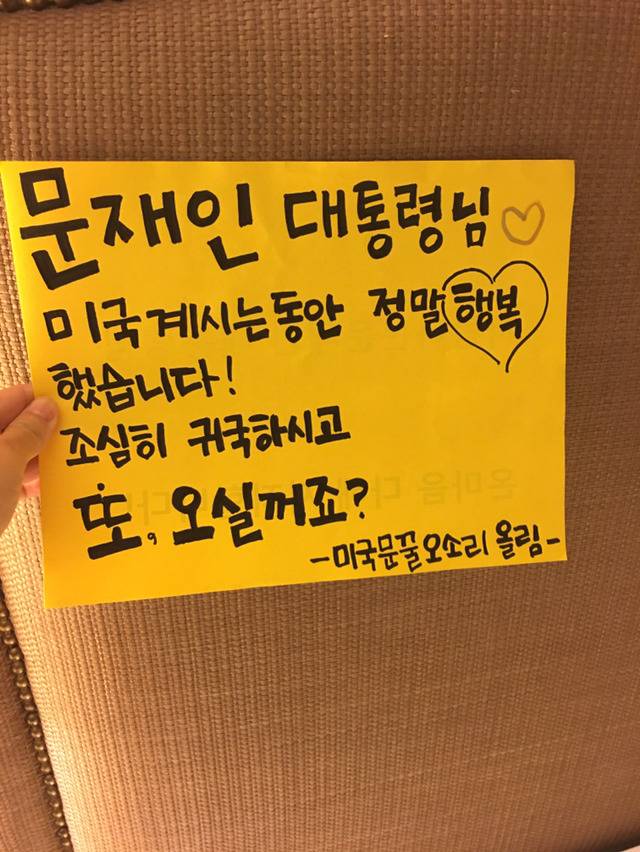 문재인 대통령님
미국계시는동안 정말행복
했습니다!
조심히 귀국하시고
또, 오실꺼죠?
-미국문꿀오소리 올림-